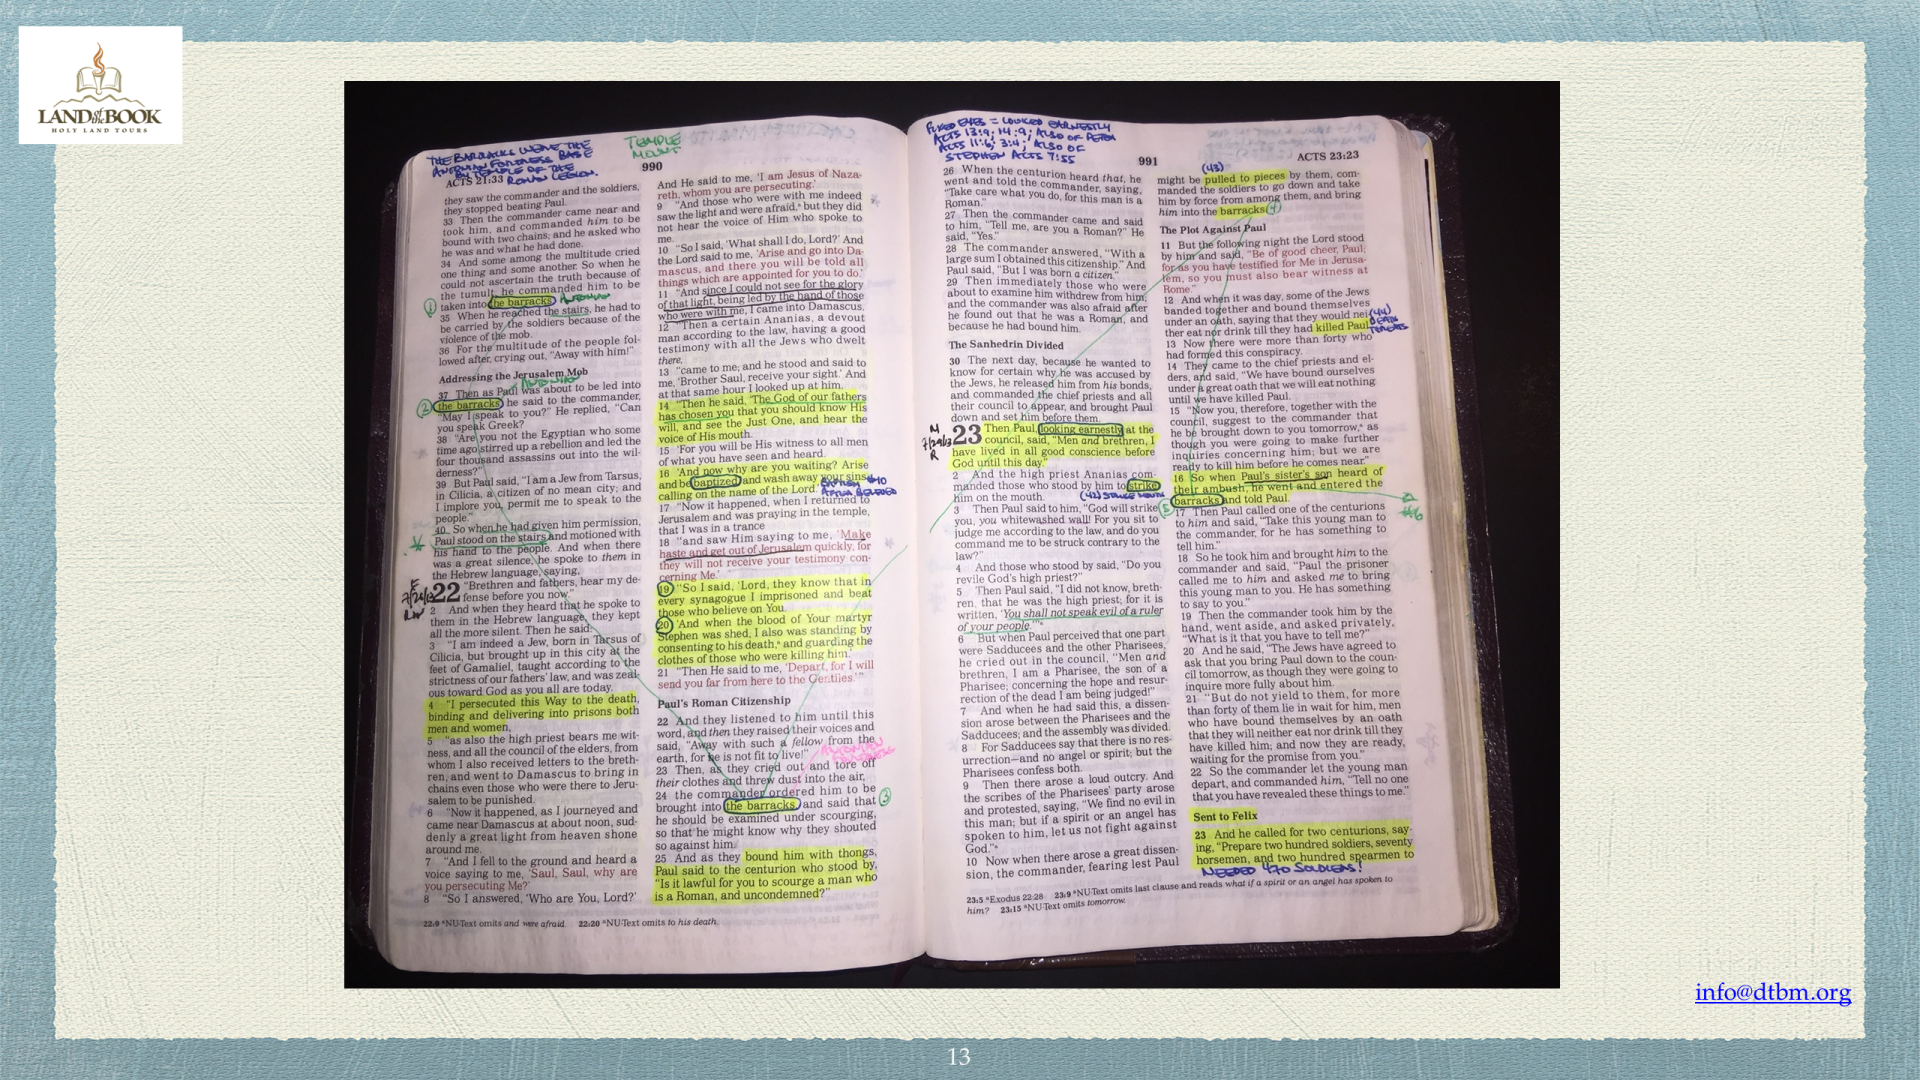 LAND of the BOOK
HOLY LAND TOURS
THE BARRACKS WERE THE
ANTONIAN FORTRESS BASE
BY TEMPLE OF THE
ROMAN LEGION.
TEMPLE
MOUNT
ACTS 21:33
990
they saw the commander and the soldiers,
they stopped beating Paul.
33 Then the commander came near and
took him, and commanded him to be
bound with two chains; and he asked who
he was and what he had done.
34 And some among the multitude cried
one thing and some another. So when he
could not ascertain the truth because of
the tumult, he commanded him to be
taken into the barracks.
35 When he reached the stairs, he had to
be carried by the soldiers because of the
violence of the mob.
36 For the multitude of the people fol-
lowed after, crying out, “Away with him!”
Addressing the Jerusalem Mob
37 Then as Paul was about to be led into
the barracks, he said to the commander,
“May I speak to you?” He replied, “Can
you speak Greek?
38 “Are you not the Egyptian who some
time ago stirred up a rebellion and led the
four thousand assassins out into the wil-
derness?”
39 But Paul said, “I am a Jew from Tarsus,
in Cilicia, a citizen of no mean city; and
I implore you, permit me to speak to the
people.”
40 So when he had given him permission,
Paul stood on the stairs and motioned with
his hand to the people. And when there
was a great silence, he spoke to them in
the Hebrew language, saying,
22 “Brethren and fathers, hear my de-
fense before you now.”
2 And when they heard that he spoke to
them in the Hebrew language, they kept
all the more silent. Then he said:
3 “I am indeed a Jew, born in Tarsus of
Cilicia, but brought up in this city at the
feet of Gamaliel, taught according to the
strictness of our fathers’ law, and was zeal-
ous toward God as you all are today.
4 “I persecuted this Way to the death,
binding and delivering into prisons both
men and women,
5 “as also the high priest bears me wit-
ness, and all the council of the elders, from
whom I also received letters to the breth-
ren, and went to Damascus to bring in
chains even those who were there to Jeru-
salem to be punished.
6 “Now it happened, as I journeyed and
came near Damascus at about noon, sud-
denly a great light from heaven shone
around me.
7 “And I fell to the ground and heard a
voice saying to me, ‘Saul, Saul, why are
you persecuting Me?’
8 “So I answered, ‘Who are You, Lord?’
And He said to me, ‘I am Jesus of Naza-
reth, whom you are persecuting.’
9 “And those who were with me indeed
saw the light and were afraid,ᵃ but they did
not hear the voice of Him who spoke to
me.
10 “So I said, ‘What shall I do, Lord?’ And
the Lord said to me, ‘Arise and go into Da-
mascus, and there you will be told all
things which are appointed for you to do.’
11 “And since I could not see for the glory
of that light, being led by the hand of those
who were with me, I came into Damascus.
12 “Then a certain Ananias, a devout
man according to the law, having a good
testimony with all the Jews who dwelt
there,
13 “came to me; and he stood and said to
me, ‘Brother Saul, receive your sight.’ And
at that same hour I looked up at him.
14 “Then he said, ‘The God of our fathers
has chosen you that you should know His
will, and see the Just One, and hear the
voice of His mouth.
15 ‘For you will be His witness to all men
of what you have seen and heard.
16 ‘And now why are you waiting? Arise
and be baptized, and wash away your sins,
calling on the name of the Lord.’
BAPTISM #10
AFTER BELIEVED
17 “Now it happened, when I returned to
Jerusalem and was praying in the temple,
that I was in a trance
18 “and saw Him saying to me, ‘Make
haste and get out of Jerusalem quickly, for
they will not receive your testimony con-
cerning Me.’
19 “So I said, ‘Lord, they know that in
every synagogue I imprisoned and beat
those who believe on You.
20 ‘And when the blood of Your martyr
Stephen was shed, I also was standing by
consenting to his death,ᵃ and guarding the
clothes of those who were killing him.’
21 “Then He said to me, ‘Depart, for I will
send you far from here to the Gentiles.’”
Paul’s Roman Citizenship
22 And they listened to him until this
word, and then they raised their voices and
said, “Away with such a fellow from the
earth, for he is not fit to live!”
ANTONIAN
FORTRESS
23 Then, as they cried out and tore off
their clothes and threw dust into the air,
24 the commander ordered him to be
brought into the barracks, and said that
he should be examined under scourging,
so that he might know why they shouted
so against him.
25 And as they bound him with thongs,
Paul said to the centurion who stood by,
“Is it lawful for you to scourge a man who
is a Roman, and uncondemned?”
22:9 ᵃNU-Text omits and were afraid. 22:20 ᵃNU-Text omits to his death.
FIXED EYES = LOOKED EARNESTLY
ACTS 13:9; 14:9; ALSO OF PETER
ACTS 11:6; 3:4; ALSO OF
STEPHEN ACTS 7:55
991
ACTS 23:23
26 When the centurion heard that, he
went and told the commander, saying,
“Take care what you do, for this man is a
Roman.”
27 Then the commander came and said
to him, “Tell me, are you a Roman?” He
said, “Yes.”
28 The commander answered, “With a
large sum I obtained this citizenship.” And
Paul said, “But I was born a citizen.”
29 Then immediately those who were
about to examine him withdrew from him;
and the commander was also afraid after
he found out that he was a Roman, and
because he had bound him.
The Sanhedrin Divided
30 The next day, because he wanted to
know for certain why he was accused by
the Jews, he released him from his bonds,
and commanded the chief priests and all
their council to appear, and brought Paul
down and set him before them.
23 Then Paul, looking earnestly at the
council, said, “Men and brethren, I
have lived in all good conscience before
God until this day.”
2 And the high priest Ananias com-
manded those who stood by him to strike
him on the mouth.
(42) STRUCK MOUTH
3 Then Paul said to him, “God will strike
you, you whitewashed wall! For you sit to
judge me according to the law, and do you
command me to be struck contrary to the
law?”
4 And those who stood by said, “Do you
revile God’s high priest?”
5 Then Paul said, “I did not know, breth-
ren, that he was the high priest; for it is
written, ‘You shall not speak evil of a ruler
of your people.’”ᵃ
6 But when Paul perceived that one part
were Sadducees and the other Pharisees,
he cried out in the council, “Men and
brethren, I am a Pharisee, the son of a
Pharisee; concerning the hope and resur-
rection of the dead I am being judged!”
7 And when he had said this, a dissen-
sion arose between the Pharisees and the
Sadducees; and the assembly was divided.
8 For Sadducees say that there is no res-
urrection—and no angel or spirit; but the
Pharisees confess both.
9 Then there arose a loud outcry. And
the scribes of the Pharisees’ party arose
and protested, saying, “We find no evil in
this man; but if a spirit or an angel has
spoken to him, let us not fight against
God.”ᵃ
10 Now when there arose a great dissen-
sion, the commander, fearing lest Paul
(43)
might be pulled to pieces by them, com-
manded the soldiers to go down and take
him by force from among them, and bring
him into the barracks.
The Plot Against Paul
11 But the following night the Lord stood
by him and said, “Be of good cheer, Paul;
for as you have testified for Me in Jerusa-
lem, so you must also bear witness at
Rome.”
12 And when it was day, some of the Jews
banded together and bound themselves
under an oath, saying that they would nei-
ther eat nor drink till they had killed Paul.
(44)
DEATH
THREATS
13 Now there were more than forty who
had formed this conspiracy.
14 They came to the chief priests and el-
ders, and said, “We have bound ourselves
under a great oath that we will eat nothing
until we have killed Paul.
15 “Now you, therefore, together with the
council, suggest to the commander that
he be brought down to you tomorrow,ᵃ as
though you were going to make further
inquiries concerning him; but we are
ready to kill him before he comes near.”
16 So when Paul’s sister’s son heard of
their ambush, he went and entered the
barracks and told Paul.
17 Then Paul called one of the centurions
to him and said, “Take this young man to
the commander, for he has something to
tell him.”
18 So he took him and brought him to the
commander and said, “Paul the prisoner
called me to him and asked me to bring
this young man to you. He has something
to say to you.”
19 Then the commander took him by the
hand, went aside, and asked privately,
“What is it that you have to tell me?”
20 And he said, “The Jews have agreed to
ask that you bring Paul down to the coun-
cil tomorrow, as though they were going to
inquire more fully about him.
21 “But do not yield to them, for more
than forty of them lie in wait for him, men
who have bound themselves by an oath
that they will neither eat nor drink till they
have killed him; and now they are ready,
waiting for the promise from you.”
22 So the commander let the young man
depart, and commanded him, “Tell no one
that you have revealed these things to me.”
Sent to Felix
23 And he called for two centurions, say-
ing, “Prepare two hundred soldiers, seventy
horsemen, and two hundred spearmen to
NEEDED 470 SOLDIERS!
23:5 ᵃExodus 22:28 23:9 ᵃNU-Text omits last clause and reads what if a spirit or an angel has spoken to
him? 23:15 ᵃNU-Text omits tomorrow.
info@dtbm.org
13